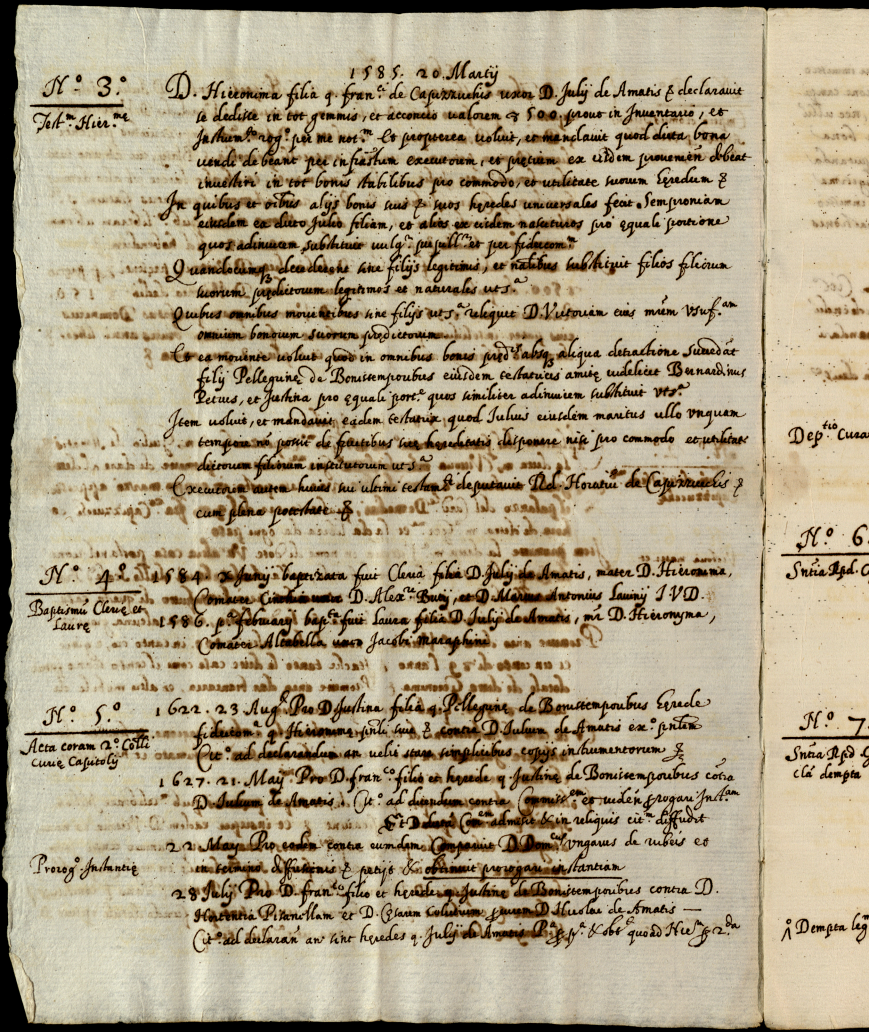 1585. 20. Martij
N.º 3.º
Test.m Hier.me
D. Hieronima filia q. fran.ci de Capizzuchis uxor D. Julij de Amatis & declaravit
se dedisse in tot gemmis, et acconcio valorem 500 prout in Inventario, et
Instrum.to rog.o per me not.m Et propterea voluit, et mandavit quod dicta bona
vendi debeant per infrãstum executorem, et pretium ex eisdem provemen̄ debeat
investiri in tot bonis stabilibus pro commodo, et utilitate suorum heredum &
In quibus et oĩbus alijs bonis suis & suos heredes universales fecit Semproniam
eiusdem ea dicto Julio filiam, et alios ex eisdem nascituros pro equali portione
quos adinvicem substituit vulg.r pupill.r et per fideicom.m
Quandocumq decederent sine filijs legitimis, et nãlibus substituit filios filiorum
suorum predictorum legitimos et naturales ut s.a
Quibus omnibus morientibus sine filijs ut s.a reliquit D. Victoriam eius mr̃em usuf.am
omnium bonorum suorum predictorum
Et ea moriente voluit quod in omnibus bonis pred.is absq aliqua detractione succedãt
filij Pellegrine de Bonistemporibus eiusdem testatricis amite videlicet Bernardinus
Petrus, et Justina pro equali port.e quos similiter adinvicem substituit ut s.a
Item voluit, et mandavit eadem testatrix quod Julius eiusdem maritus ullo unquam
tempore nõ possit de fructibus sue hereditatis disponere nisi pro commodo et utilitate
dictorum filiorum institutorum ut s.a
Executorem autem huius sui ultimi testam.ti deputavit R.d. Horatiũ de Capizzuchis &
cum plena potestate &
N.º 4.º
Baptismũ Clerie et
Laure
1584. Junij baptizata fuit Cleria filia D. Julij de Amatis, mater D. Hieronima,
Comater D. Alex.ra Butij, et D. Marius Antonius Lavinij I V D.
1586. p.a february bap.ta fuit Laura filia D. Julij de Amatis, mr̃ D. Hieronyma,
Comater Altabella uxor Jacobi Maraphini
N.º 5.º
Acta coram 2.º Colli
Curie Capitolij
1622. 23 Aug.ti Pro D. Justina filia q. Pellegrine de Bonistemporibus herede
fideicom.a q. Hieronime sue & contra D. Julium de Amatis ex.o
Cit.o ad declarandum an velit stare simplicibus copijs instrumentorum &
1627. 21. Maij Pro D. fran.co filio et herede q. Justine de Bonistemporibus cõtra
D. Julium de Amatis. Cit.o ad dicendum contra et viden̄ prorogari Inst.am
admisit & in reliquis cit.m diffudit
Prorog.o Instantie
22 Maij Pro eodem contra eumdem Comparuit D. Dom.cus Ungarus de rubeis et
in termino & petijt & obtinuit prorogari instantiam
28 Julij Pro D. fran.co filio et herede q. Justine de Bonistemporibus contra D.
Hortentia Pisanellam et D. Cesarem D. de Amatis —
Cit.o ad declaran̄ an sint heredes q. Julij de Amatis & obt.t quoad Hier.m 2.da
Dep.tio Cura
N.º 6.
Snt̃ia Rpd.
N.º 7.
Snt̃ia Rpd
dempta
Dempta leg.m